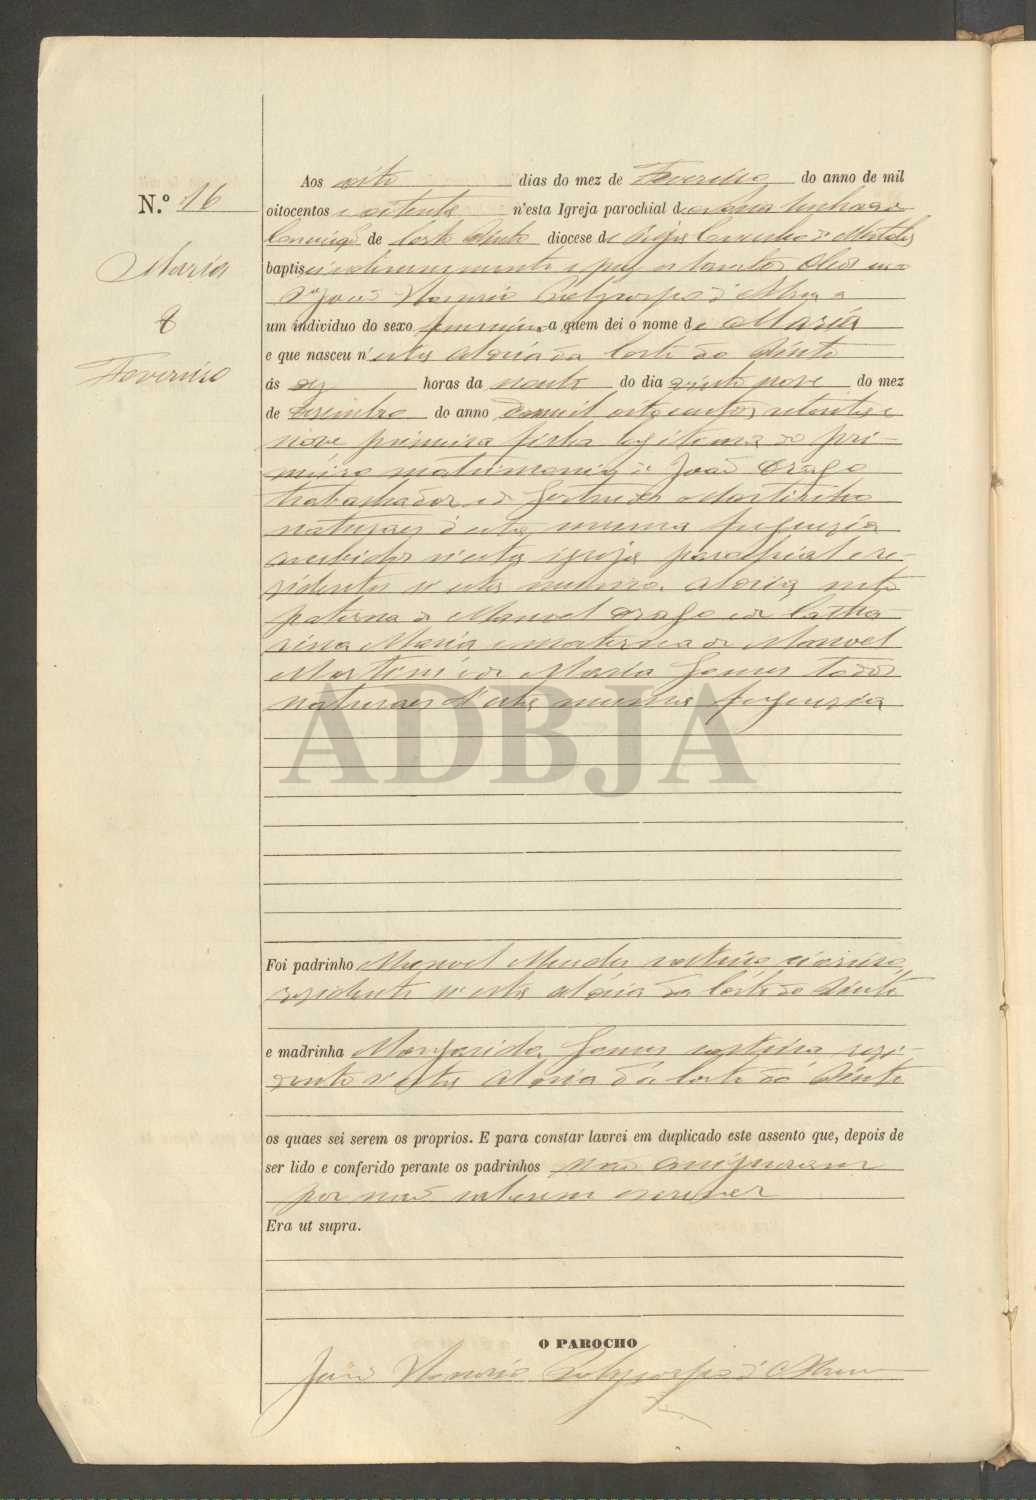 N.º 16
Maria
8
Fevereiro
Aos oito dias do mez de Fevereiro do anno de mil
oitocentos e oitenta n'esta Igreja parochial de Nossa Senhora da
Conceição de Corte Pinto diocese de Beja Concelho de Mertola
baptisei solemnemente e puz os Santos Oleos eu o
João Honorio Polycarpo d'
um individuo do sexo feminino a quem dei o nome de Maria
e que nasceu n'esta aldeia da Corte do Pinto
ás horas da noute do dia vinte nove do mez
de Desembro do anno de mil oito centos setenta e
nove primeira filha legitima do pri-
meiro matrimonio de João Drago
trabalhador e de Gertrudes Martinho
naturaes d'esta mesma freguezia
recebidos n'esta igreja parochial e re-
zidentes n'esta mesma aldeia neta
paterna de Manoel Drago e de Catha
rina Maria e materna de Manoel
Martins e de Maria Gomes todos
naturaes d'esta mesma freguezia
ADBJA
Foi padrinho Manoel Mendes solteiro
rezidente n'esta aldeia da Corte do Pinto
e madrinha Margarida Gomes solteira rezi-
dente n'esta aldeia da Corte do Pinto
os quaes sei serem os proprios. E para constar lavrei em duplicado este assento que, depois de
ser lido e conferido perante os padrinhos não assignaram
por não saberem escrever
Era ut supra.
O PAROCHO
João Honorio Polycarpo d'